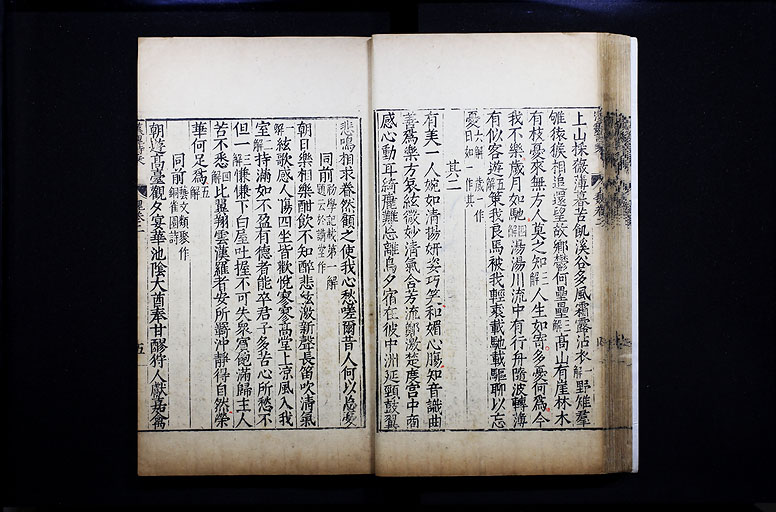 上山採薇薄暮苦飢溪谷多風霜露沾衣一解野雉羣
雊猿猴相追還望故鄉鬱何壘壘二解高山有崖林木
有枝憂來無方人莫之知三解人生如寄多憂何為今
我不樂歲月如馳四解湯湯川流中有行舟隨波轉薄
有似客遊五解策我良馬被我輕裘載馳載驅聊以忘
憂六解歲一作日如一作其
其二
有美一人婉如清揚妍姿巧笑和媚心腸知音識曲
善為樂方哀絃微妙清氣含芳流鄭激楚度宮中商
感心動耳綺麗難忘離鳥夕宿在彼中洲延頸鼓翼
悲鳴相求眷然顧之使我心愁嗟爾昔人何以忘憂
同前初學記載第一解題云於講堂作
朝日樂相樂酣飲不知醉悲絃激新聲長笛吹清氣
一解絃歌感人腸四坐皆歡悅寥寥高堂上涼風入我
室二解持滿如不盈有德者能卒君子多苦心所愁不
但一三解慊慊下白屋吐握不可失衆賓飽滿歸主人
苦不悉四解比翼翔雲漢羅者安所羈沖靜得自然榮
華何足為五解
同前藝文類聚作銅雀園詩
朝遊高臺觀夕宴華池陰大酋奉甘醪狩人獻嘉禽